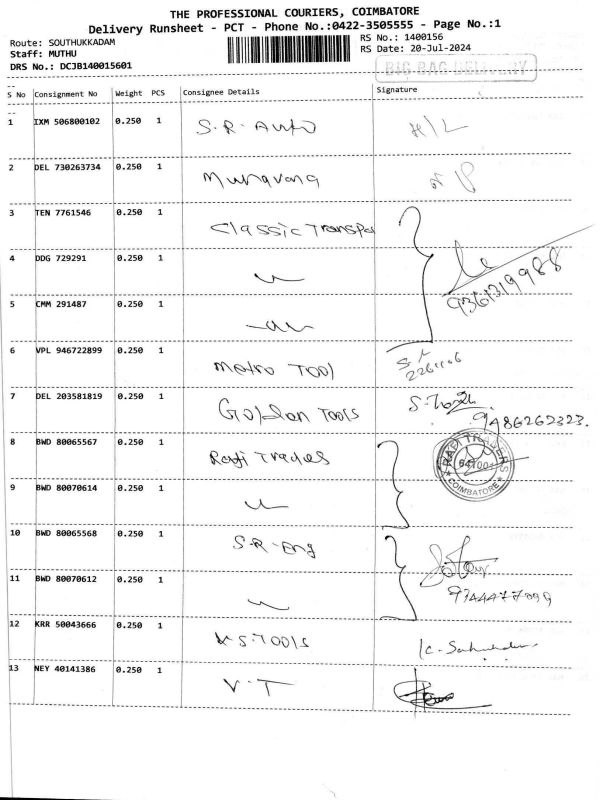 THE PROFESSIONAL COURIERS, COIMBATORE
Delivery Runsheet - PCT - Phone No.:0422-3505555 - Page No.:1
Route: SOUTHUKKADAM RS No.: 1400156
Staff: MUTHU RS Date: 20-Jul-2024
DRS No.: DCJB140015601 BIG BAG DELIVERY
S No Consignment No Weight PCS Consignee Details Signature
1 IXM 506800102 0.250 1 S.R. Auto H/L
2 DEL 730263734 0.250 1
3 TEN 7761546 0.250 1 Classic Transpo
4 DDG 729291 0.250 1
9361319988
5 CMM 291487 0.250 1
6 VPL 946722899 0.250 1 Metro Tool
7 DEL 203581819 0.250 1 Golden Tools
9486262323.
8 BWD 80065567 0.250 1 Rafi Trades RAFI TRADERS 641001 COIMBATORE
9 BWD 80070614 0.250 1
10 BWD 80065568 0.250 1 S.R. Eng
11 BWD 80070612 0.250 1
12 KRR 50043666 0.250 1 K S. TOOLS
13 NEY 40141386 0.250 1 V. T